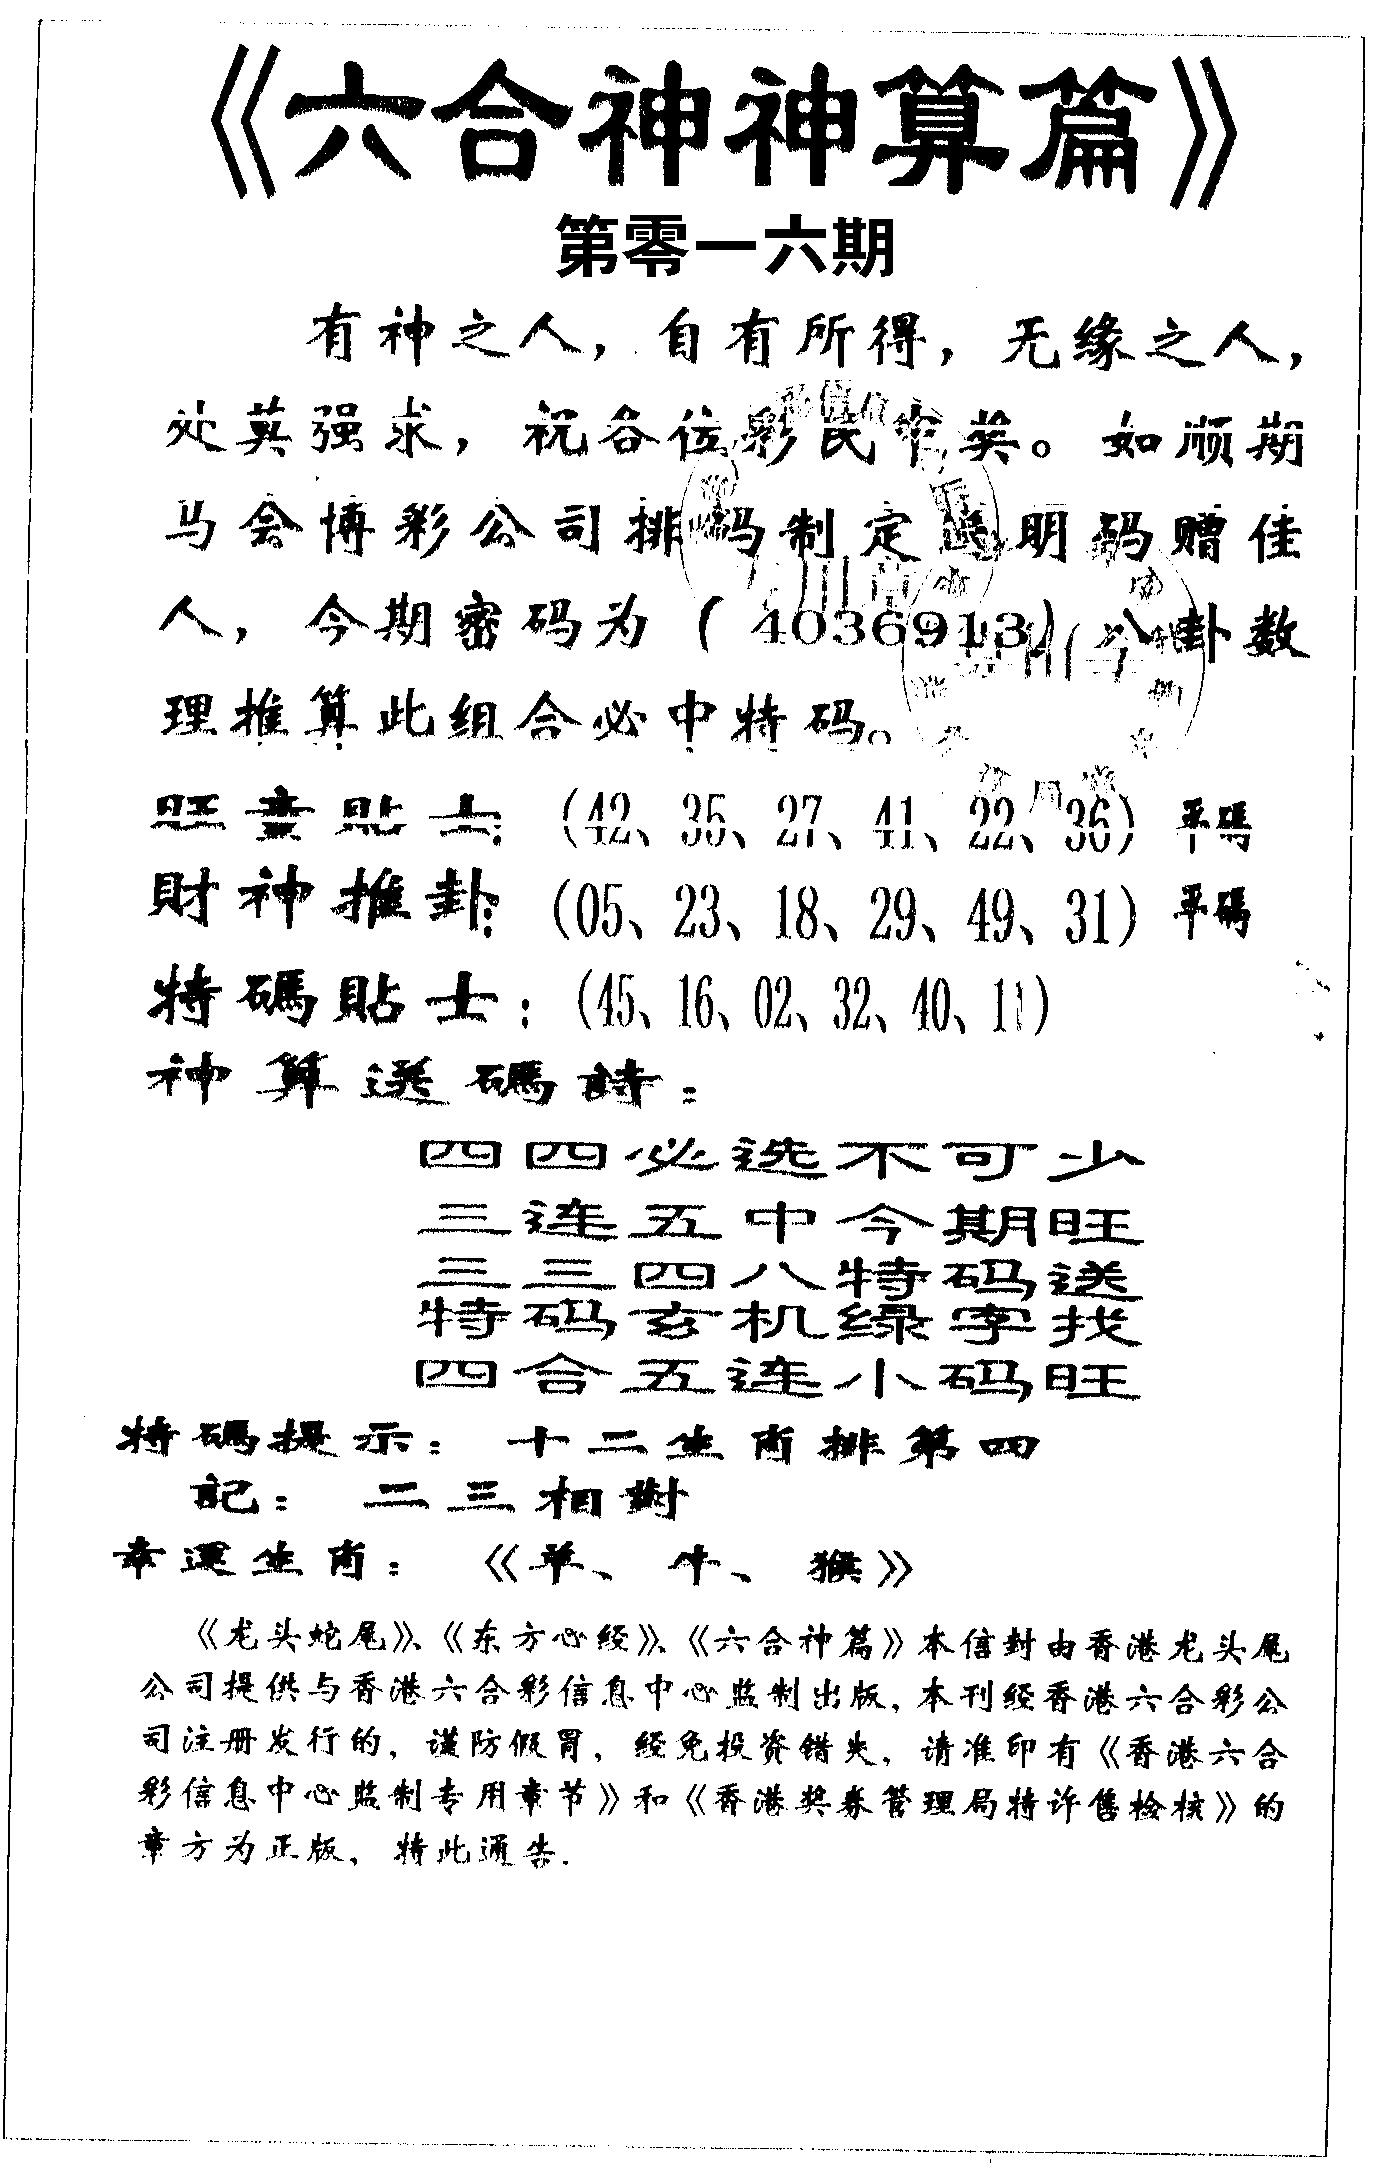 《六合神神算篇》
第零一六期
有神之人，自有所得，无缘之人，
处莫强求，祝各位彩民中奖。如顺期
马会博彩公司排码制定透明码赠佳
人，今期密码为（4036913）八卦数
理推算此组合必中特码。
旺童貼士：（42、35、27、41、22、36）平碼
財神推卦：（05、23、18、29、49、31）平碼
特碼貼士：（45、16、02、32、40、11）
神算选碼詩：
四四必选不可少
三连五中今期旺
三三四八特码送
特码玄机绿字找
四合五连小码旺
特碼提示：十二生肖排第四
記：二三相對
幸運生肖：《羊、牛、猴》
《龙头蛇尾》、《东方心经》、《六合神篇》本信封由香港龙头尾
公司提供与香港六合彩信息中心监制出版，本刊经香港六合彩公
司注册发行的，谨防假冒，经免投资错失，请准印有《香港六合
彩信息中心监制专用章节》和《香港奖券管理局特许售检核》的
章方为正版，特此通告.